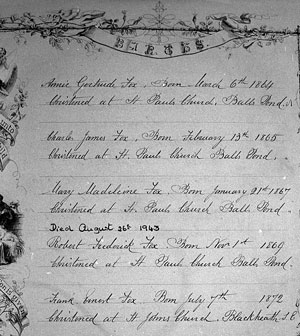 BIRTHS
Annie Gertrude Fox, Born March 6th 1864
Christened at St. Pauls Church, Balls Pond.
Charles James Fox, Born February 13th 1865
Christened at St. Pauls Church Balls Pond.
Mary Madeleine Fox Born January 21st 1867
Christened at St. Pauls Church Balls Pond
Died August 1943
Robert Frederick Fox Born Nov 1st 1869
Christened at St. Pauls Church Balls Pond.
Frank Ernest Fox Born July 7th 1872
Christened at St Johns Church, Blackheath, S.E